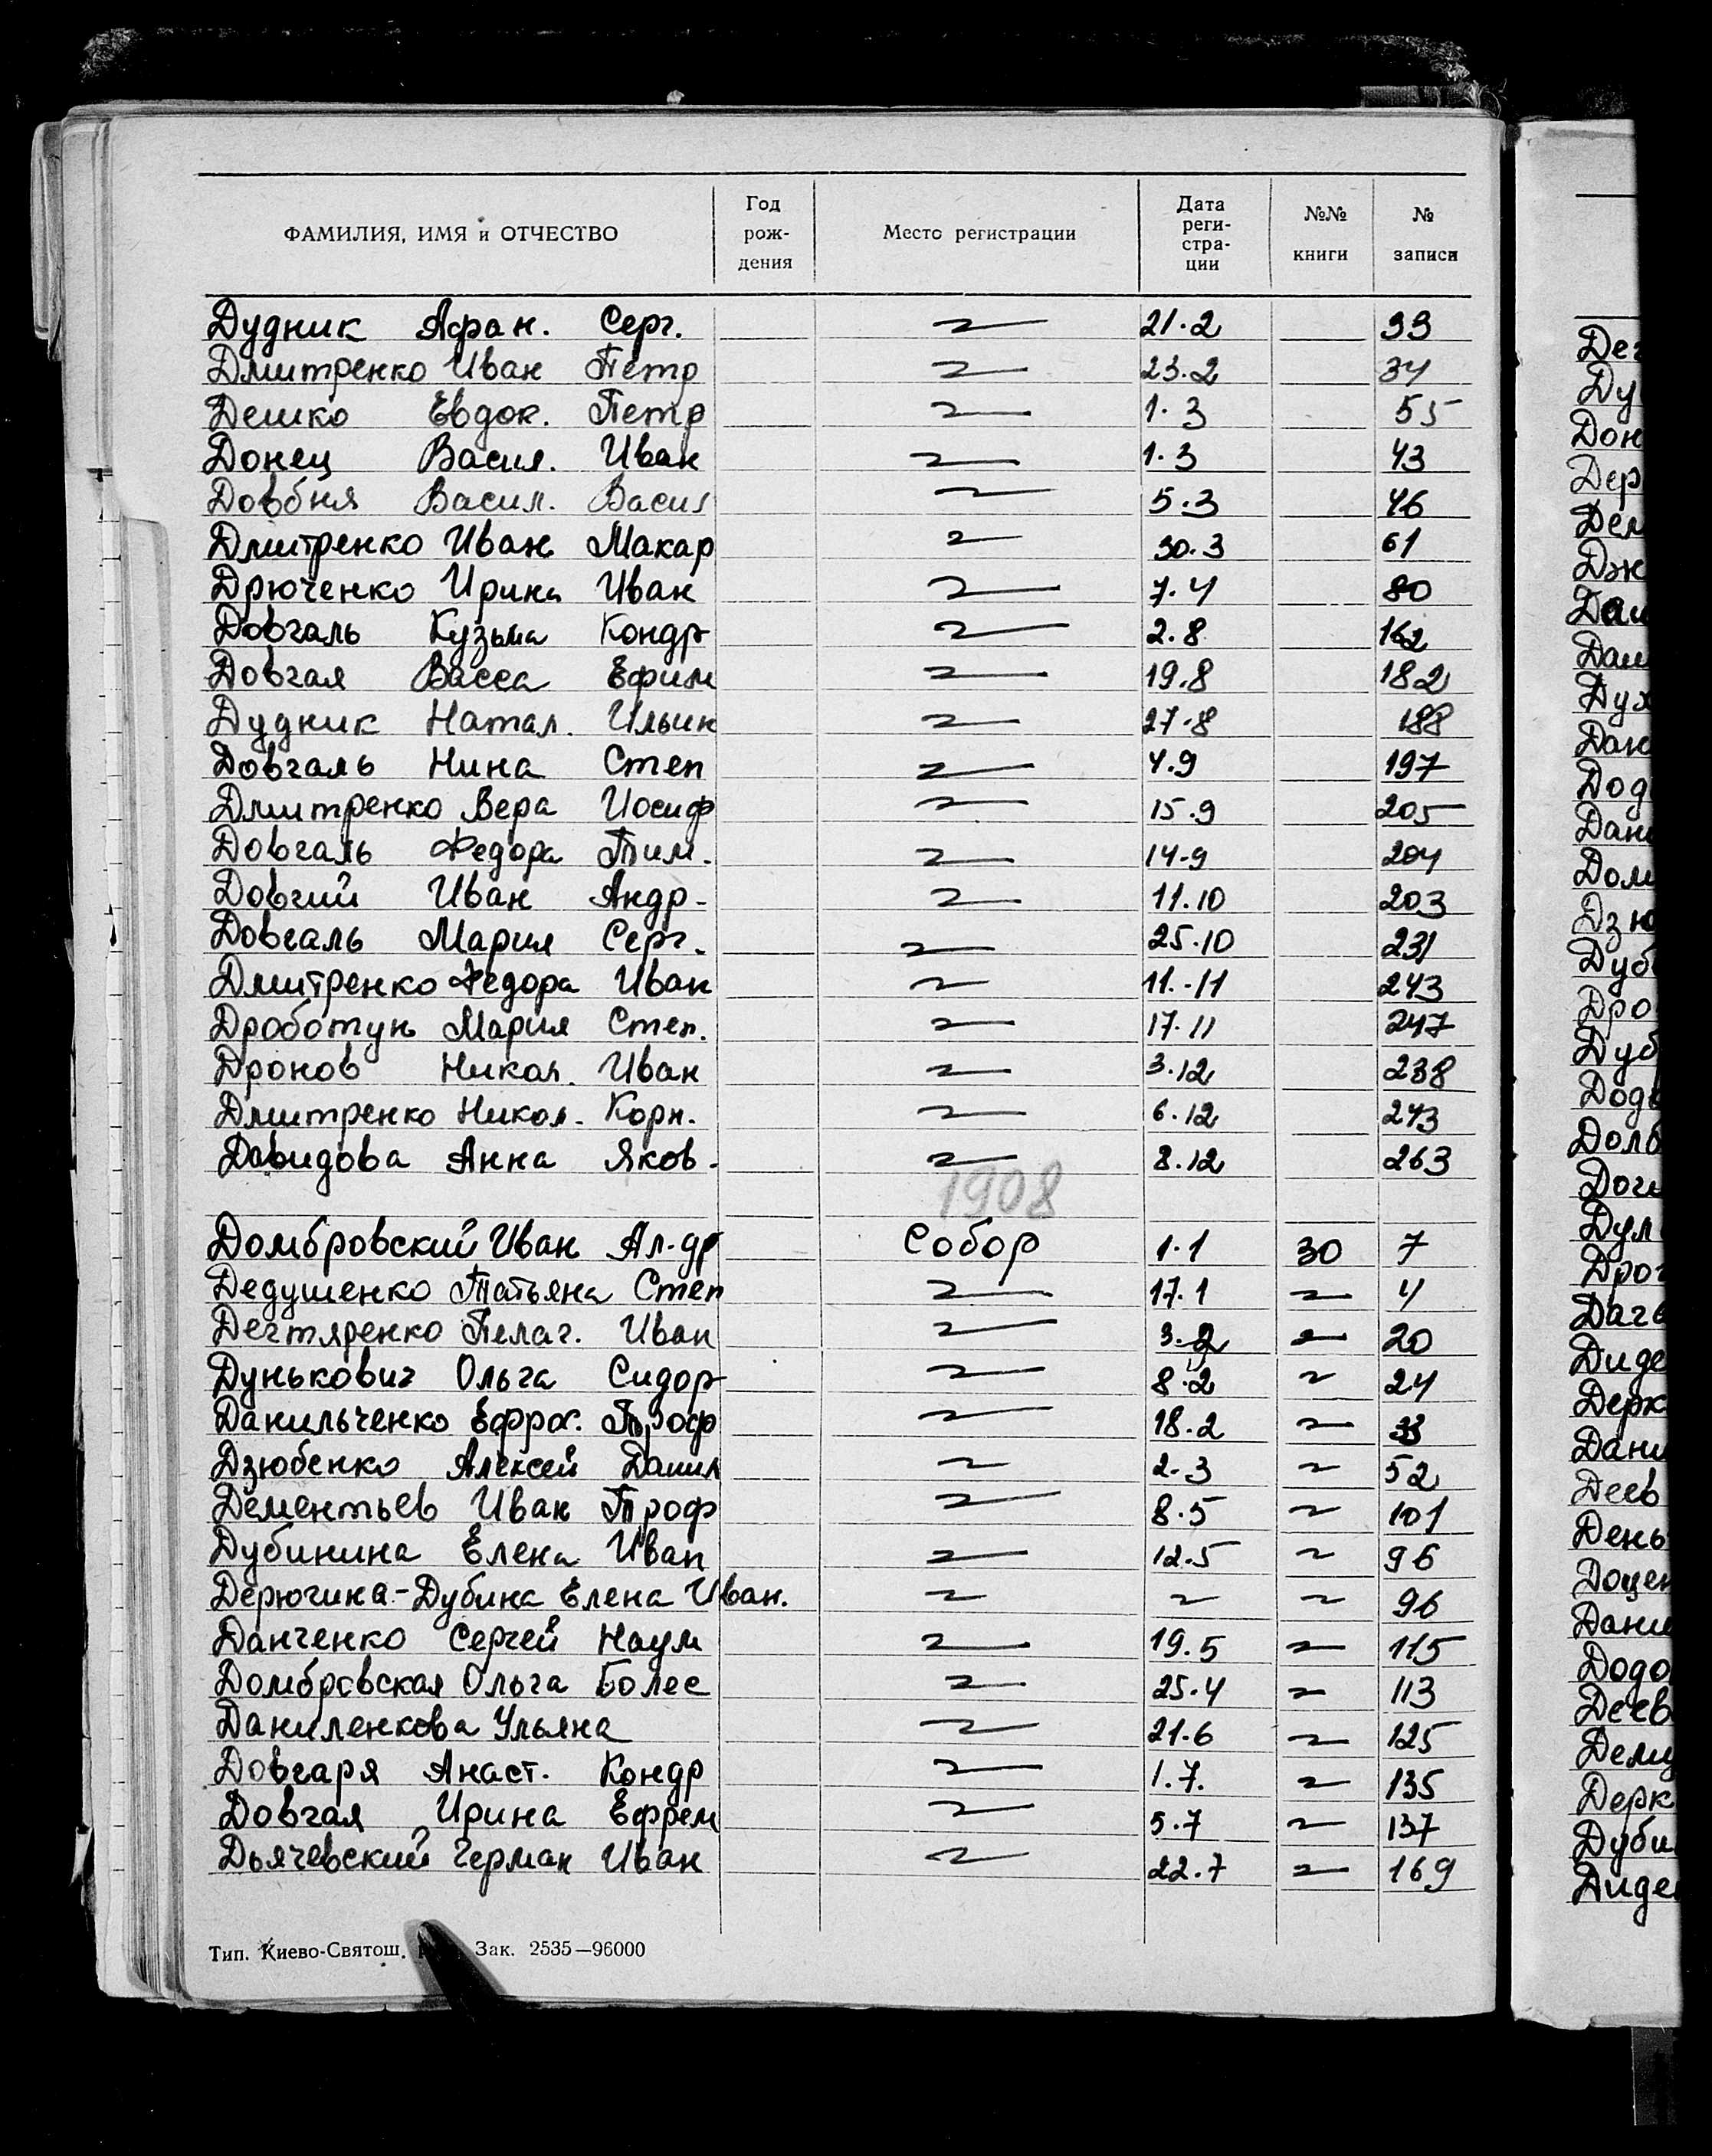 ФАМИЛИЯ, ИМЯ и ОТЧЕСТВО | Год рождения | Место регистрации | Дата регистрации | №№ книги | № записи
Дудник Афан. Серг. 21.2 33
Дмитренко Иван Петр 23.2 34
Дешко Евдок. Петр 1.3 55
Донец Васил. Иван 1.3 43
Довбня Васил. Васил 5.3 46
Дмитренко Иван Макар 30.3 61
Дрюченко Ирина Иван 7.4 80
Довгаль Кузьма Кондр 2.8 162
Довгая Васса Ефим 19.8 182
Дудник Натал. Ильин 27.8 188
Довгаль Нина Степ 4.9 197
Дмитренко Вера Иосиф 15.9 205
Довгаль Федора Тим. 14.9 204
Довгий Иван Андр- 11.10 203
Довгаль Мария Серг. 25.10 231
Дмитренко Федора Иван 11.11 243
Дроботун Мария Степ. 17.11 247
Дронов Никол. Иван 3.12 238
Дмитренко Никол. Корн. 6.12 243
Давидова Анна Яков. 8.12 263
1908
Домбровский Иван Ал-др Собор 1.1 30 7
Дедушенко Татьяна Степ 17.1 4
Дегтяренко Пелаг. Иван 3.2 20
Дунькович Ольга Сидор 8.2 24
Данильченко Ефрос. Троф 18.2 33
Дзюбенко Алексей Данил 2.3 52
Дементьев Иван Троф 8.5 101
Дубинина Елена Иван 12.5 96
Дерюгина-Дубина Елена Иван. 96
Данченко Сергей Наум 19.5 115
Домбровская Ольга Болес 25.4 113
Даниленкова Ульяна 21.6 125
Довгаря Анаст. Кондр 1.7. 135
Довгая Ирина Ефрем 5.7 137
Дьячевский Герман Иван 22.7 169
Тип. Киево-Святош. Зак. 2535—96000